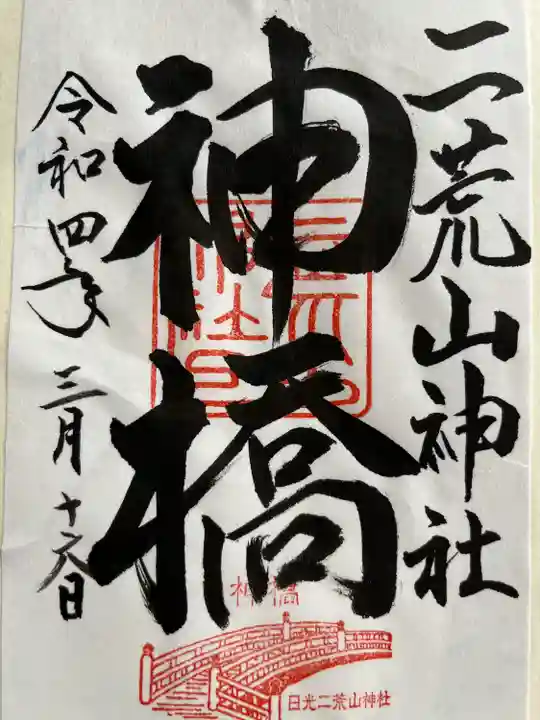 二荒山神社
神橋
令和四年三月十六日
神橋
日光二荒山神社